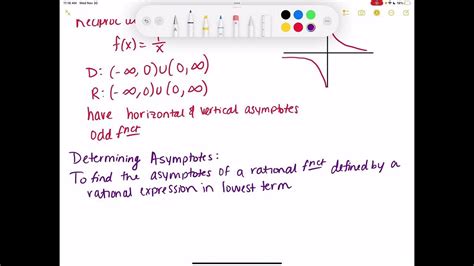 11:16 AM Wed Nov 30
f(x) = 1/x
D: (-∞, 0) ∪ (0, ∞)
R: (-∞, 0) ∪ (0, ∞)
have horizontal & vertical asymptotes
odd fnct
Determining Asymptotes:
To find the asymptotes of a rational fnct defined by a
rational expression in lowest term